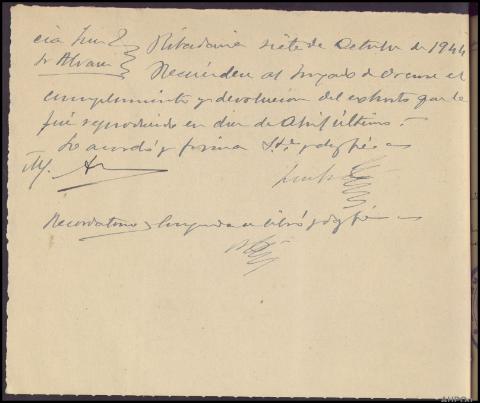 cia Juez
Sr Alvarez
Ribadavia siete de Octubre de 1944
Recuérdese al Juzgado de Orense el
cumplimiento y devolución del exhorto que le
fué reproducido en dos de Abril último.-
Lo acordó y firma S.Sª y doy fé =
M/.
Recordatorio y
se libró y doy fé =